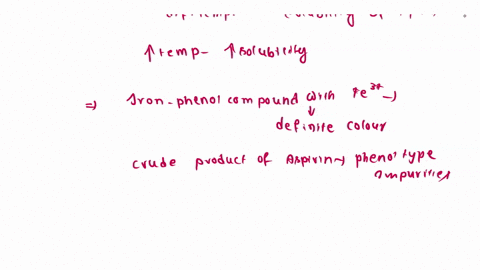 ↑temp- ↑solubility
⇒ Iron-phenol compound with Fe³⁺→
↓
definite colour
crude product of Aspirin→ phenol type
impurities